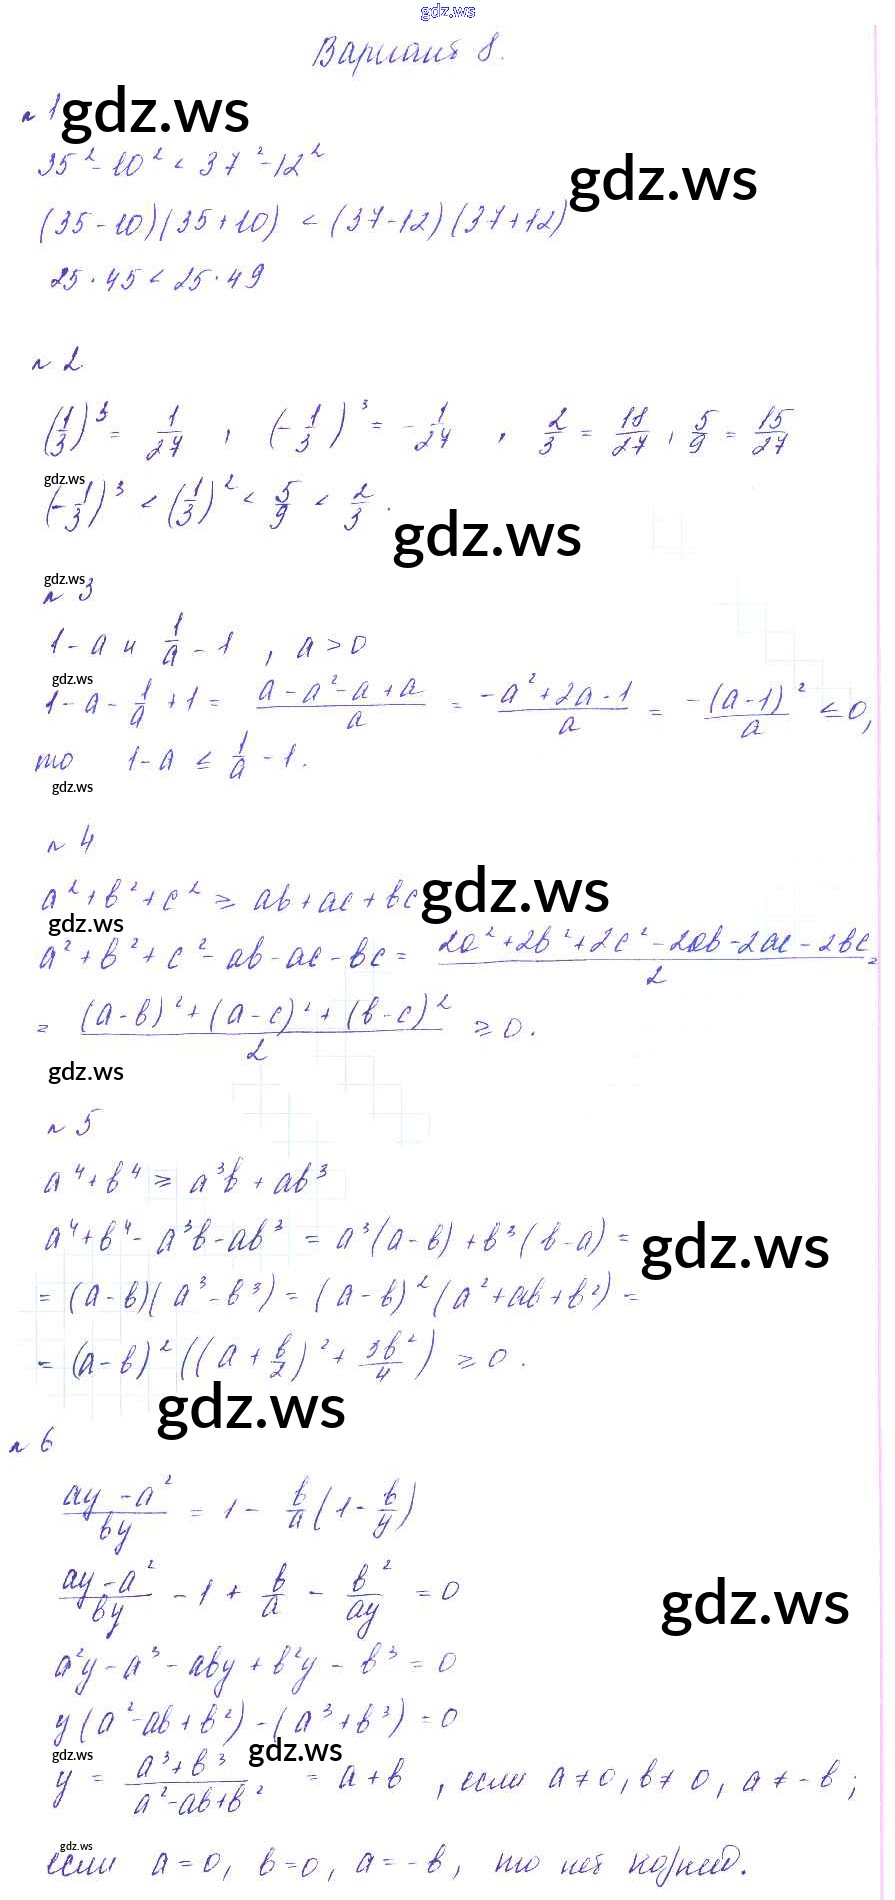 gdz.ws
Вариант 8.
№ 1
gdz.ws
35² - 10² < 37² - 12²
gdz.ws
(35-10)(35+10) < (37-12)(37+12)
25·45 < 25·49
№ 2
(1/3)³ = 1/27 , (-1/3)³ = -1/27 , 2/3 = 18/27 , 5/9 = 15/27
gdz.ws
(-1/3)³ < (1/3)² < 5/9 < 2/3 .
gdz.ws
gdz.ws
№ 3
1-a и 1/a - 1 , a > 0
gdz.ws
1-a-1/a+1 = (a-a²-a+a)/a = (-a²+2a-1)/a = -(a-1)²/a ≤ 0,
то 1-a ≤ 1/a - 1.
gdz.ws
№ 4
a²+b²+c² ≥ ab+ac+bc
gdz.ws
gdz.ws
a²+b²+c²-ab-ac-bc = (2a²+2b²+2c²-2ab-2ac-2bc)/2 =
= ((a-b)²+(a-c)²+(b-c)²)/2 ≥ 0.
gdz.ws
№ 5
a⁴+b⁴ ≥ a³b+ab³
a⁴+b⁴-a³b-ab³ = a³(a-b)+b³(b-a) =
gdz.ws
= (a-b)(a³-b³) = (a-b)²(a²+ab+b²) =
= (a-b)²((a+b/2)²+3b²/4) ≥ 0.
gdz.ws
№ 6
(ay-a²)/by = 1 - b/a(1-b/y)
(ay-a²)/by - 1 + b/a - b²/ay = 0
gdz.ws
a²y-a³-aby+b²y-b³ = 0
y(a²-ab+b²)-(a³+b³) = 0
gdz.ws
gdz.ws
y = (a³+b³)/(a²-ab+b²) = a+b , если a≠0, b≠0, a≠-b;
gdz.ws
если a=0, b=0, a=-b, то нет корней.